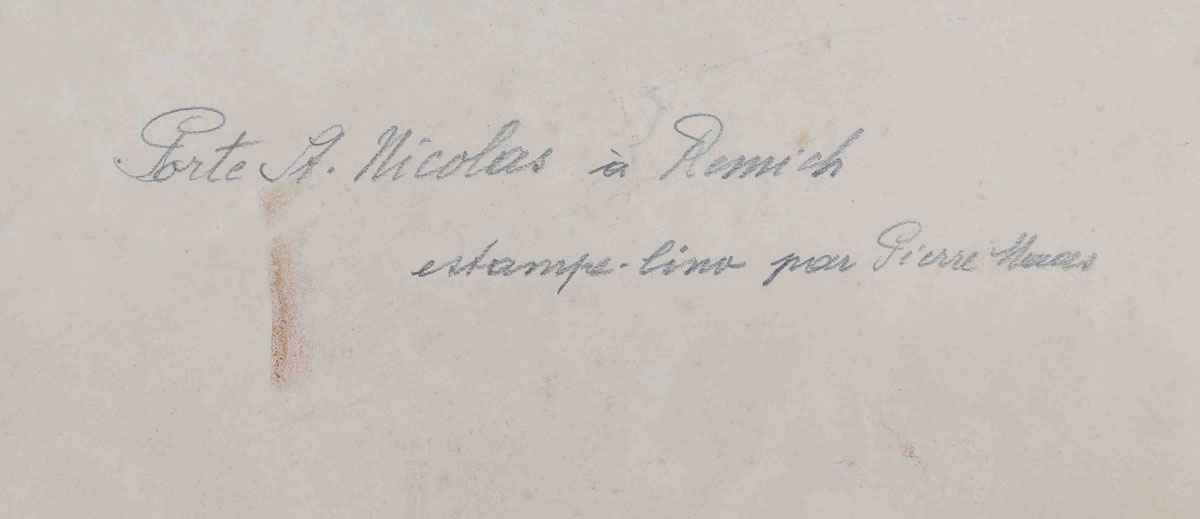 Porte St. Nicolas à Remich
estampe-lino par Pierre Maas